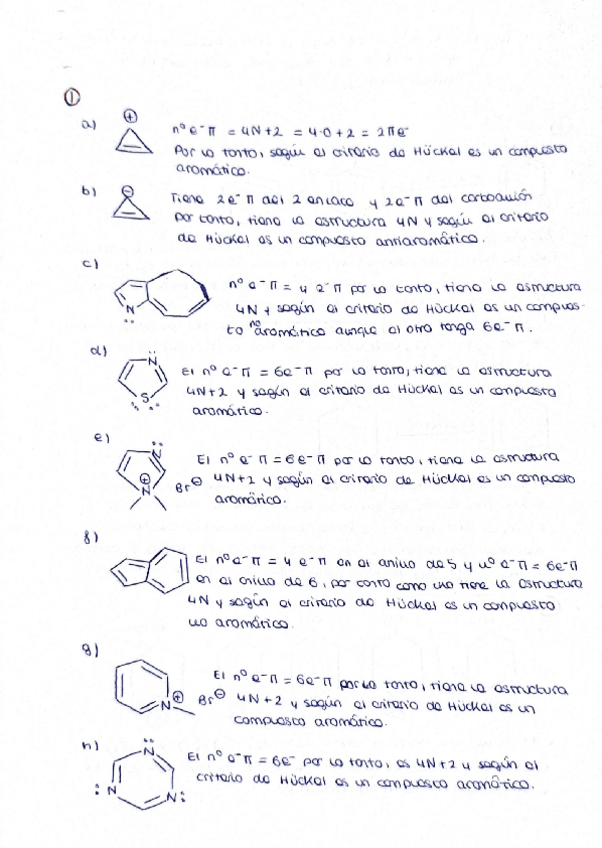 ①
a) ⊕ nº e⁻ π = 4N+2 = 4·0+2 = 2πe⁻
Por lo tanto, según el criterio de Hückel es un compuesto
aromático.
b) ⊖ Tiene 2e⁻ π del 2 enlace y 2e⁻ π del carboanión
por tanto, tiene la estructura 4N y según el criterio
de Hückel es un compuesto antiaromático.
c) N nº e⁻ π = 4 e⁻ π por lo tanto, tiene la estructura
4N y según el criterio de Hückel es un compues-
to no aromático aunque el otro tenga 6e⁻ π.
d) N S El nº e⁻ π = 6e⁻ π por lo tanto, tiene la estructura
4N+2 y según el criterio de Hückel es un compuesto
aromático.
e) N ⊕ N Br⊖ El nº e⁻ π = 6e⁻ π por lo tanto, tiene la estructura
4N+2 y según el criterio de Hückel es un compuesto
aromático.
f) El nº e⁻ π = 4 e⁻ π en el anillo de 5 y nº e⁻ π = 6e⁻ π
en el anillo de 6, por tanto como uno tiene la estructura
4N y según el criterio de Hückel es un compuesto
no aromático.
g) N ⊕ Br⊖ El nº e⁻ π = 6e⁻ π por lo tanto, tiene la estructura
4N+2 y según el criterio de Hückel es un
compuesto aromático.
h) N N N El nº e⁻ π = 6e⁻ por lo tanto, es 4N+2 y según el
criterio de Hückel es un compuesto aromático.